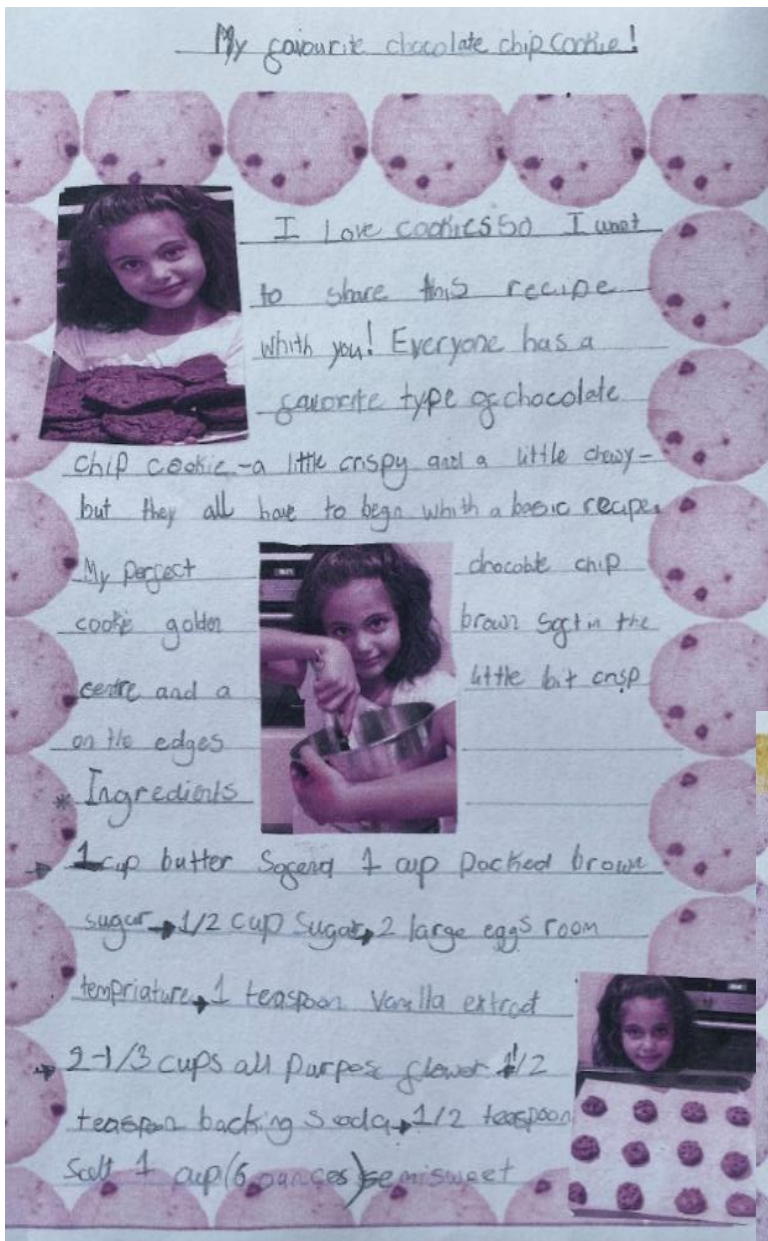 My favourite chocolate chip cookie!
I Love cookies so I want
to share this recipe
whith you! Everyone has a
favorite type of chocolate
chip cookie-a little crispy and a little chewy-
but they all have to begin whith a basic recipe.
My perfect chocolate chip
cookie golden brown soft in the
centre and a little bit crisp
on the edges
* Ingredients
→ 1 cup butter 1 cup packed brown
sugar→1/2 cup sugar→2 large eggs room
tempriature→1 teaspoon vanilla extract
→ 2-1/3 cups all purpose flower 1/2
teaspoon backing soda→1/2 teaspoon
salt 1 cup(6 ounces)semisweet